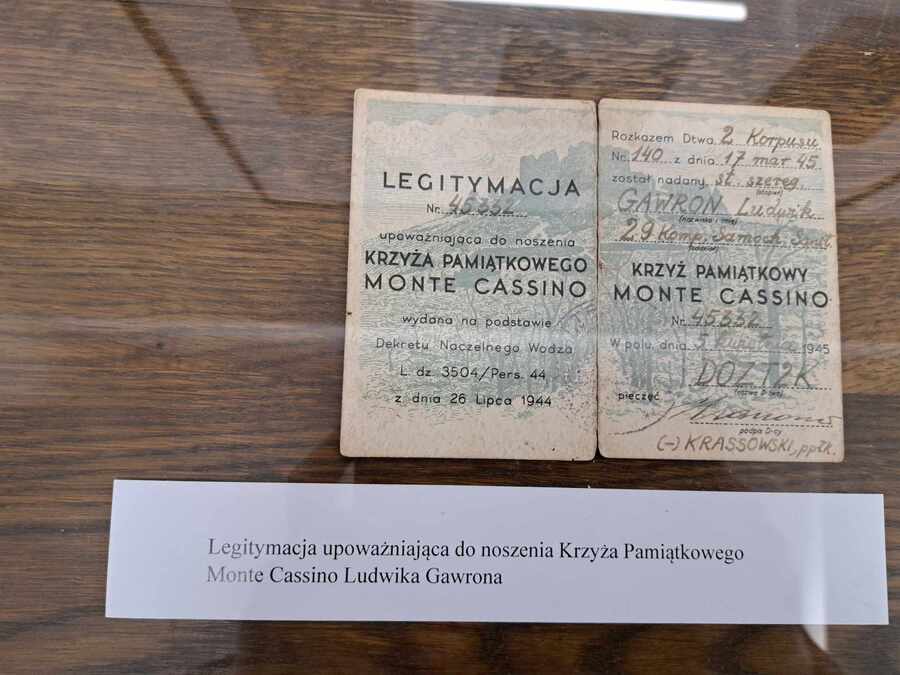 LEGITYMACJA
Nr. 45332
upoważniająca do noszenia
KRZYŻA PAMIĄTKOWEGO
MONTE CASSINO
wydana na podstawie
Dekretu Naczelnego Wodza
L. dz. 3504/Pers. 44
z dnia 26 Lipca 1944
Rozkazem Dtwa 2 Korpusu
Nr. 140 z dnia 17 mar 45
został nadany st. szereg.
(stopień)
GAWRON Ludwik
(nazwisko i imię)
29 Komp. Samoch. Sanit.
(oddział)
KRZYŻ PAMIĄTKOWY
MONTE CASSINO
Nr. 45332
W polu, dnia 5 kwietnia 1945
pieczęć
podpis D-cy
(-) KRASSOWSKI, ppłk.
Legitymacja upoważniająca do noszenia Krzyża Pamiątkowego
Monte Cassino Ludwika Gawrona